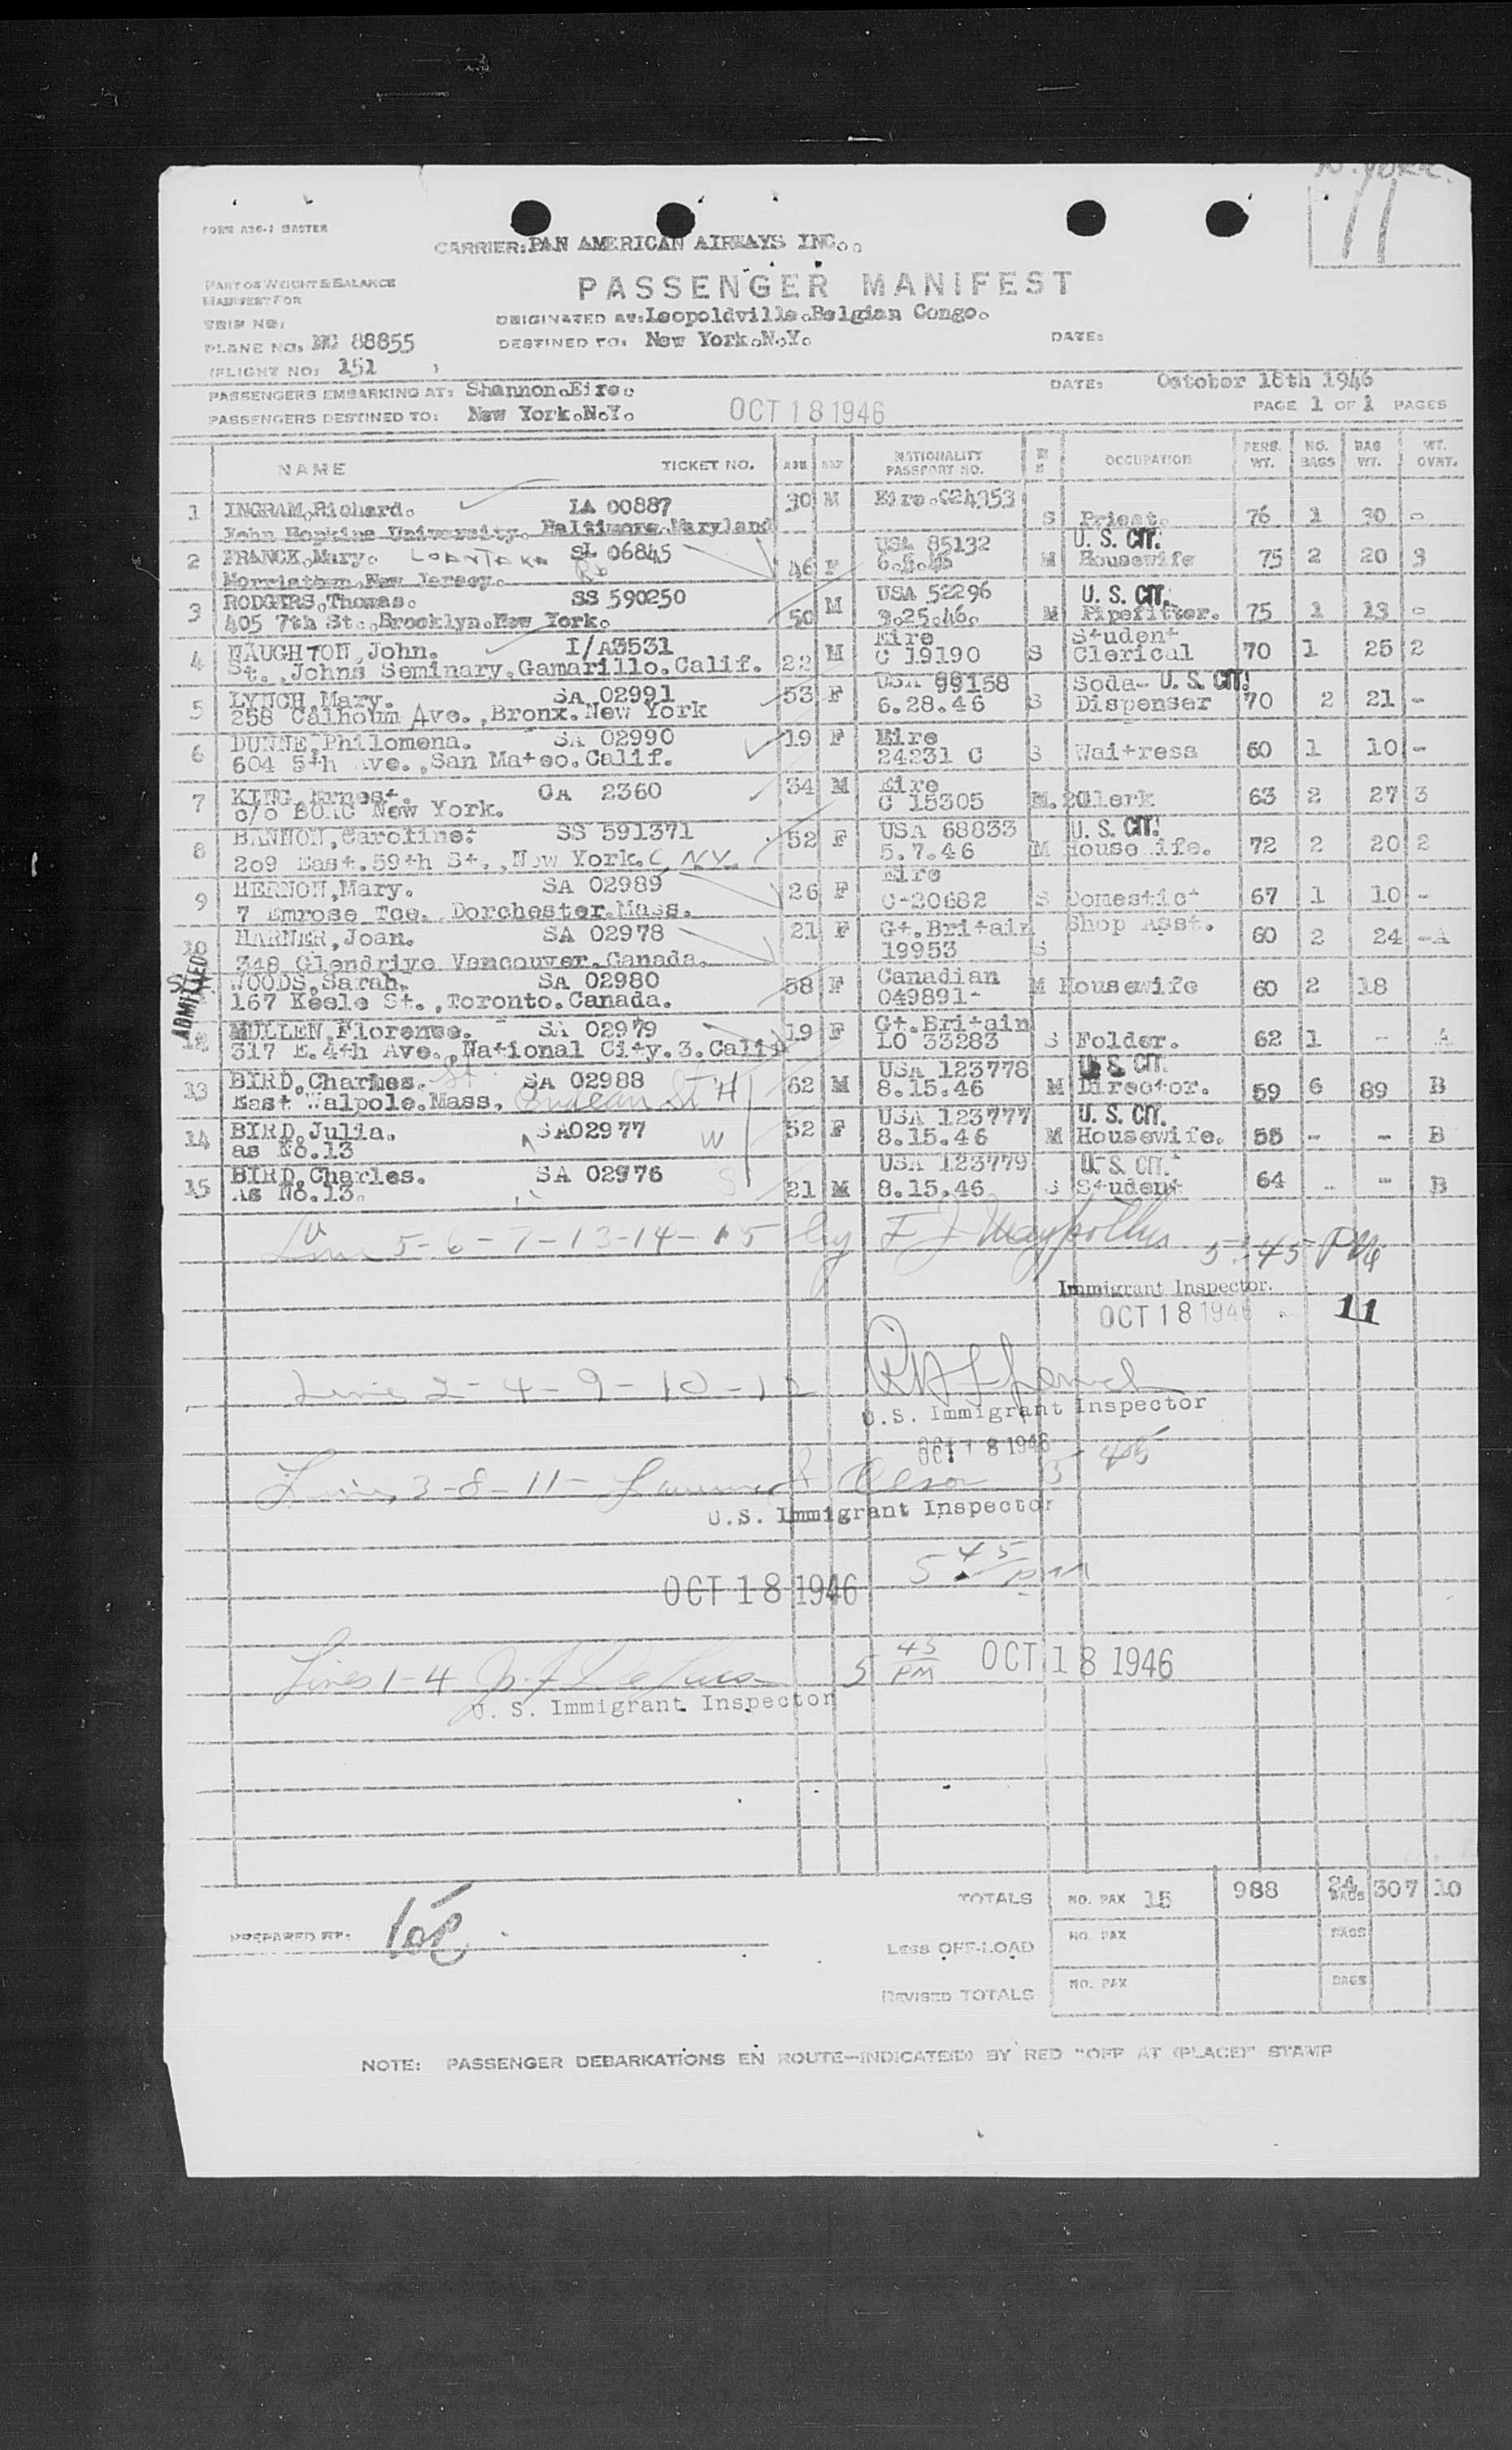 N. York.
11
FORM A26-1 MASTER
CARRIER: PAN AMERICAN AIRWAYS INC..
PART OF WEIGHT & BALANCE
MANIFEST FOR
PASSENGER MANIFEST
TRIP NO:
ORIGINATED AT: Leopoldville.Belgian Congo.
PLANE NO. NC 88855
DESTINED TO: New York.N.Y.
DATE:
(FLIGHT NO: 151 )
PASSENGERS EMBARKING AT: Shannon.Eire.
DATE: October 18th 1946
PASSENGERS DESTINED TO: New York.N.Y.
OCT 18 1946
PAGE 1 OF 1 PAGES
NAME TICKET NO. AGE SEX NATIONALITY PASSPORT NO. M S OCCUPATION PERS. WT. NO. BAGS BAG WT. WT. OVNT.
1 INGRAM,Richard. IA 00887 30 M Eire.C24353 S Priest. 76 1 30 -
John Hopkins University. Baltimore.Maryland
2 FRANCK,Mary. SL 06845 46 F USA 85132 M U. S. CIT. Housewife 75 2 20 3
Morristown.New Jersey.
3 RODGERS,Thomas. SS 590250 50 M USA 52296 M U. S. CIT. Pipefitter. 75 1 13 -
405 7th St.,Brooklyn.New York. 3.25.46.
4 NAUGHTON,John. I/A3531 22 M Eire S Student 70 1 25 2
St.,Johns Seminary.Gamarillo.Calif. C 19190 Clerical
5 LYNCH,Mary. SA 02991 53 F USA 99158 S Soda- U. S. CIT. 70 2 21 -
258 Calhoum Ave.,Bronx.New York 6.28.46 Dispenser
6 DUNNE,Philomena. SA 02990 19 F Eire S Waitress 60 1 10 -
604 5th Ave.,San Mateo.Calif. 24231 C
7 KING,Ernest. GA 2360 34 M Eire M. Clerk 63 2 27 3
c/o BOAC New York. C 15305
8 BANNON,Caroline. SS 591371 52 F USA 68833 M U. S. CIT. 72 2 20 2
209 East.59th St.,New York.C NY 5.7.46 Housewife.
9 HERNON,Mary. SA 02989 26 F Eire S Domestic 67 1 10 -
7 Emrose Tce. Dorchester.Mass. C-20682
10 HARNER,Joan. SA 02978 21 F Gt.Britain S Shop Asst. 60 2 24 -A
348 Glendriye Vancouver.Canada. 19953
ADMITTED
WOODS,Sarah. SA 02980 58 F Canadian M Housewife 60 2 18
167 Keele St.,Toronto.Canada. 049891-
12 MULLEN,Florence. SA 02979 19 F Gt.Britain S Folder. 62 1 - A
317 E.4th Ave.,National City.3.Calif LO 33283
13 BIRD,Charles. SA 02988 62 M USA 123778 M U. S. CIT. 59 6 89 B
East Walpole.Mass. 8.15.46 Director.
14 BIRD,Julia. SA02977 W 52 F USA 123777 M U. S. CIT. 55 - - B
as No.13 8.15.46 Housewife.
15 BIRD,Charles. SA 02976 S 21 M USA 123779 S U. S. CIT. 64 - - B
As No.13. 8.15.46 Student
Line 5-6-7-13-14-15 by 5:45 PM
Immigrant Inspector.
OCT 18 1946 11
Lines 2-4-9-10-12
U.S. Immigrant Inspector
OCT 18 1946
Lines 3-8-11- 5 45
U.S. Immigrant Inspector
OCT 18 1946 5 45 PM
Lines 1-4 5 45 PM OCT 18 1946
U. S. Immigrant Inspector
TOTALS NO. PAX 15 988 24 BAGS 307 10
PREPARED BY:
LESS OFF-LOAD NO. PAX BAGS
REVISED TOTALS NO. PAX BAGS
NOTE: PASSENGER DEBARKATIONS EN ROUTE—INDICATE(D) BY RED "OFF AT (PLACE)" STAMP